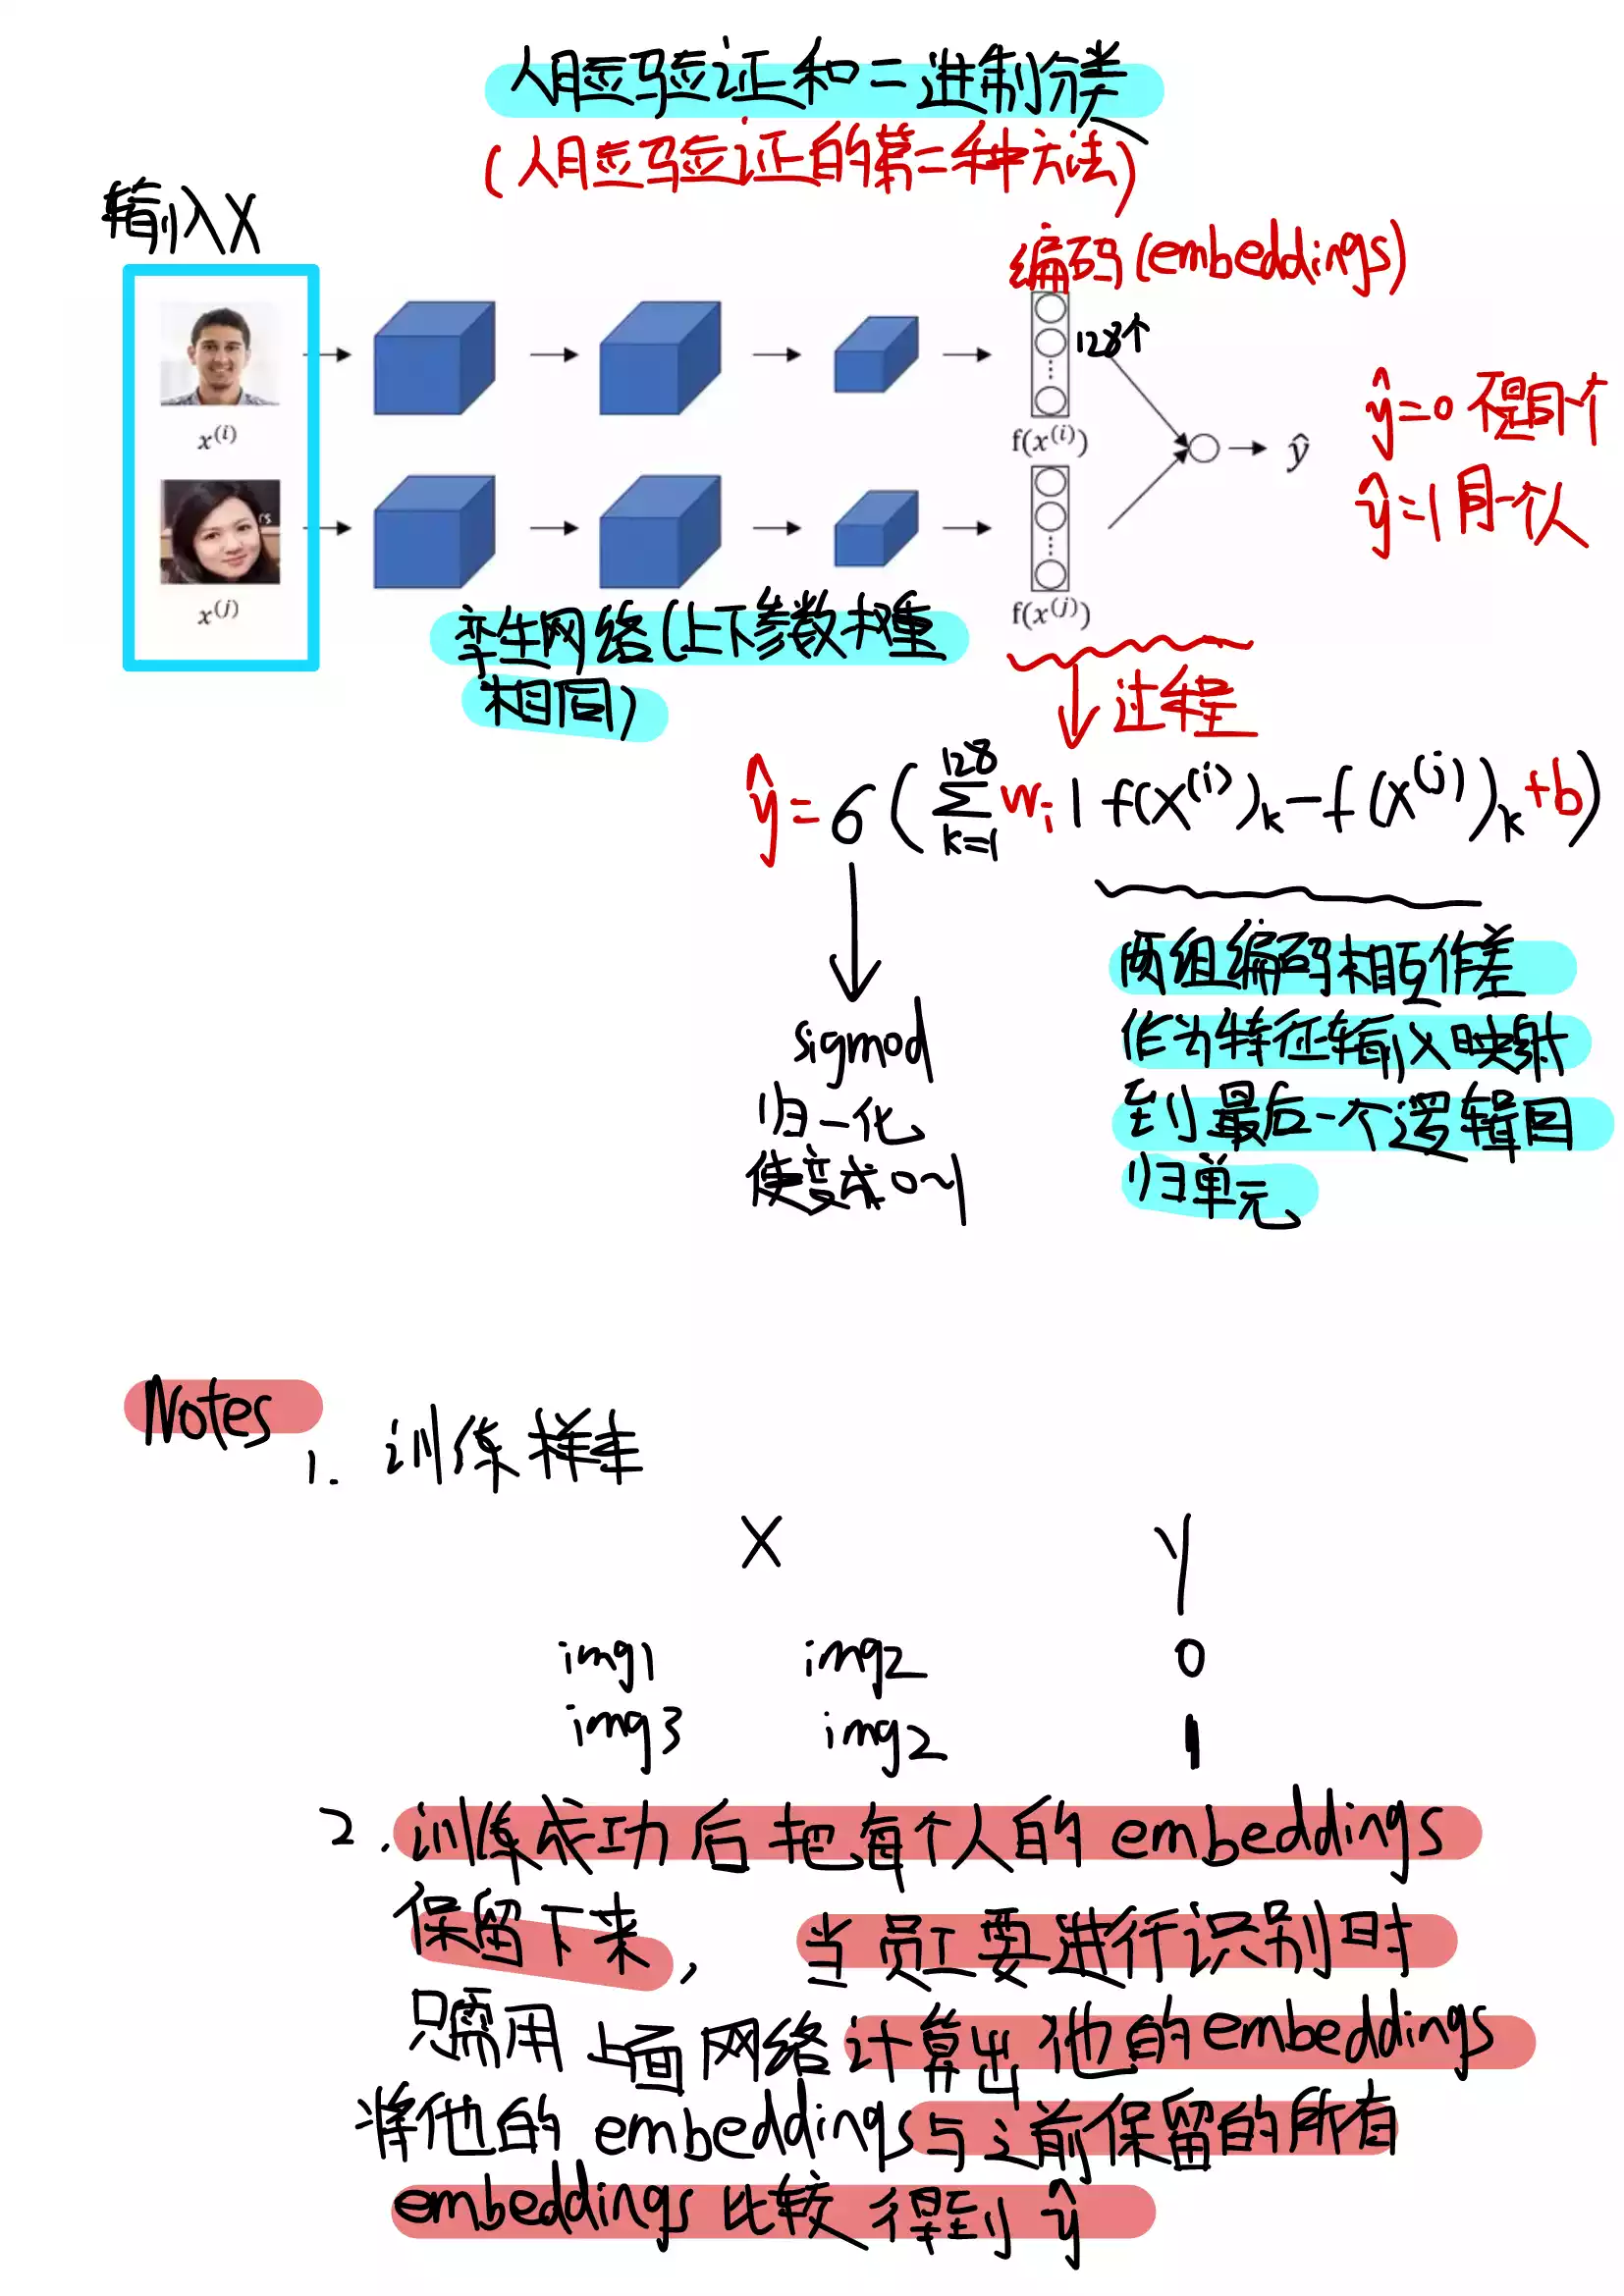 人脸验证和二进制分类
(人脸验证的第二种方法)
输入X
编码(embeddings)
128个
x⁽ⁱ⁾
f(x⁽ⁱ⁾)
ŷ
ŷ=0 不是同一个
ŷ=1 同一个人
rs
x⁽ʲ⁾
f(x⁽ʲ⁾)
孪生网络(上下参数权重
相同)
过程
ŷ=6(∑ₖ₌₁¹²⁸ wᵢ|f(x⁽ⁱ⁾)ₖ-f(x⁽ʲ⁾)ₖ+b)
sigmod
归一化
使变成0~1
两组编码相互作差
作为特征输入映射
到最后一个逻辑回
归单元
Notes
1. 训练样本
X Y
img1 img2 0
img3 img2 1
2. 训练成功后把每个人的embeddings
保留下来, 当员工要进行识别时
只需用上面网络计算出他的embeddings
将他的embeddings与之前保留的所有
embeddings比较得到ŷ